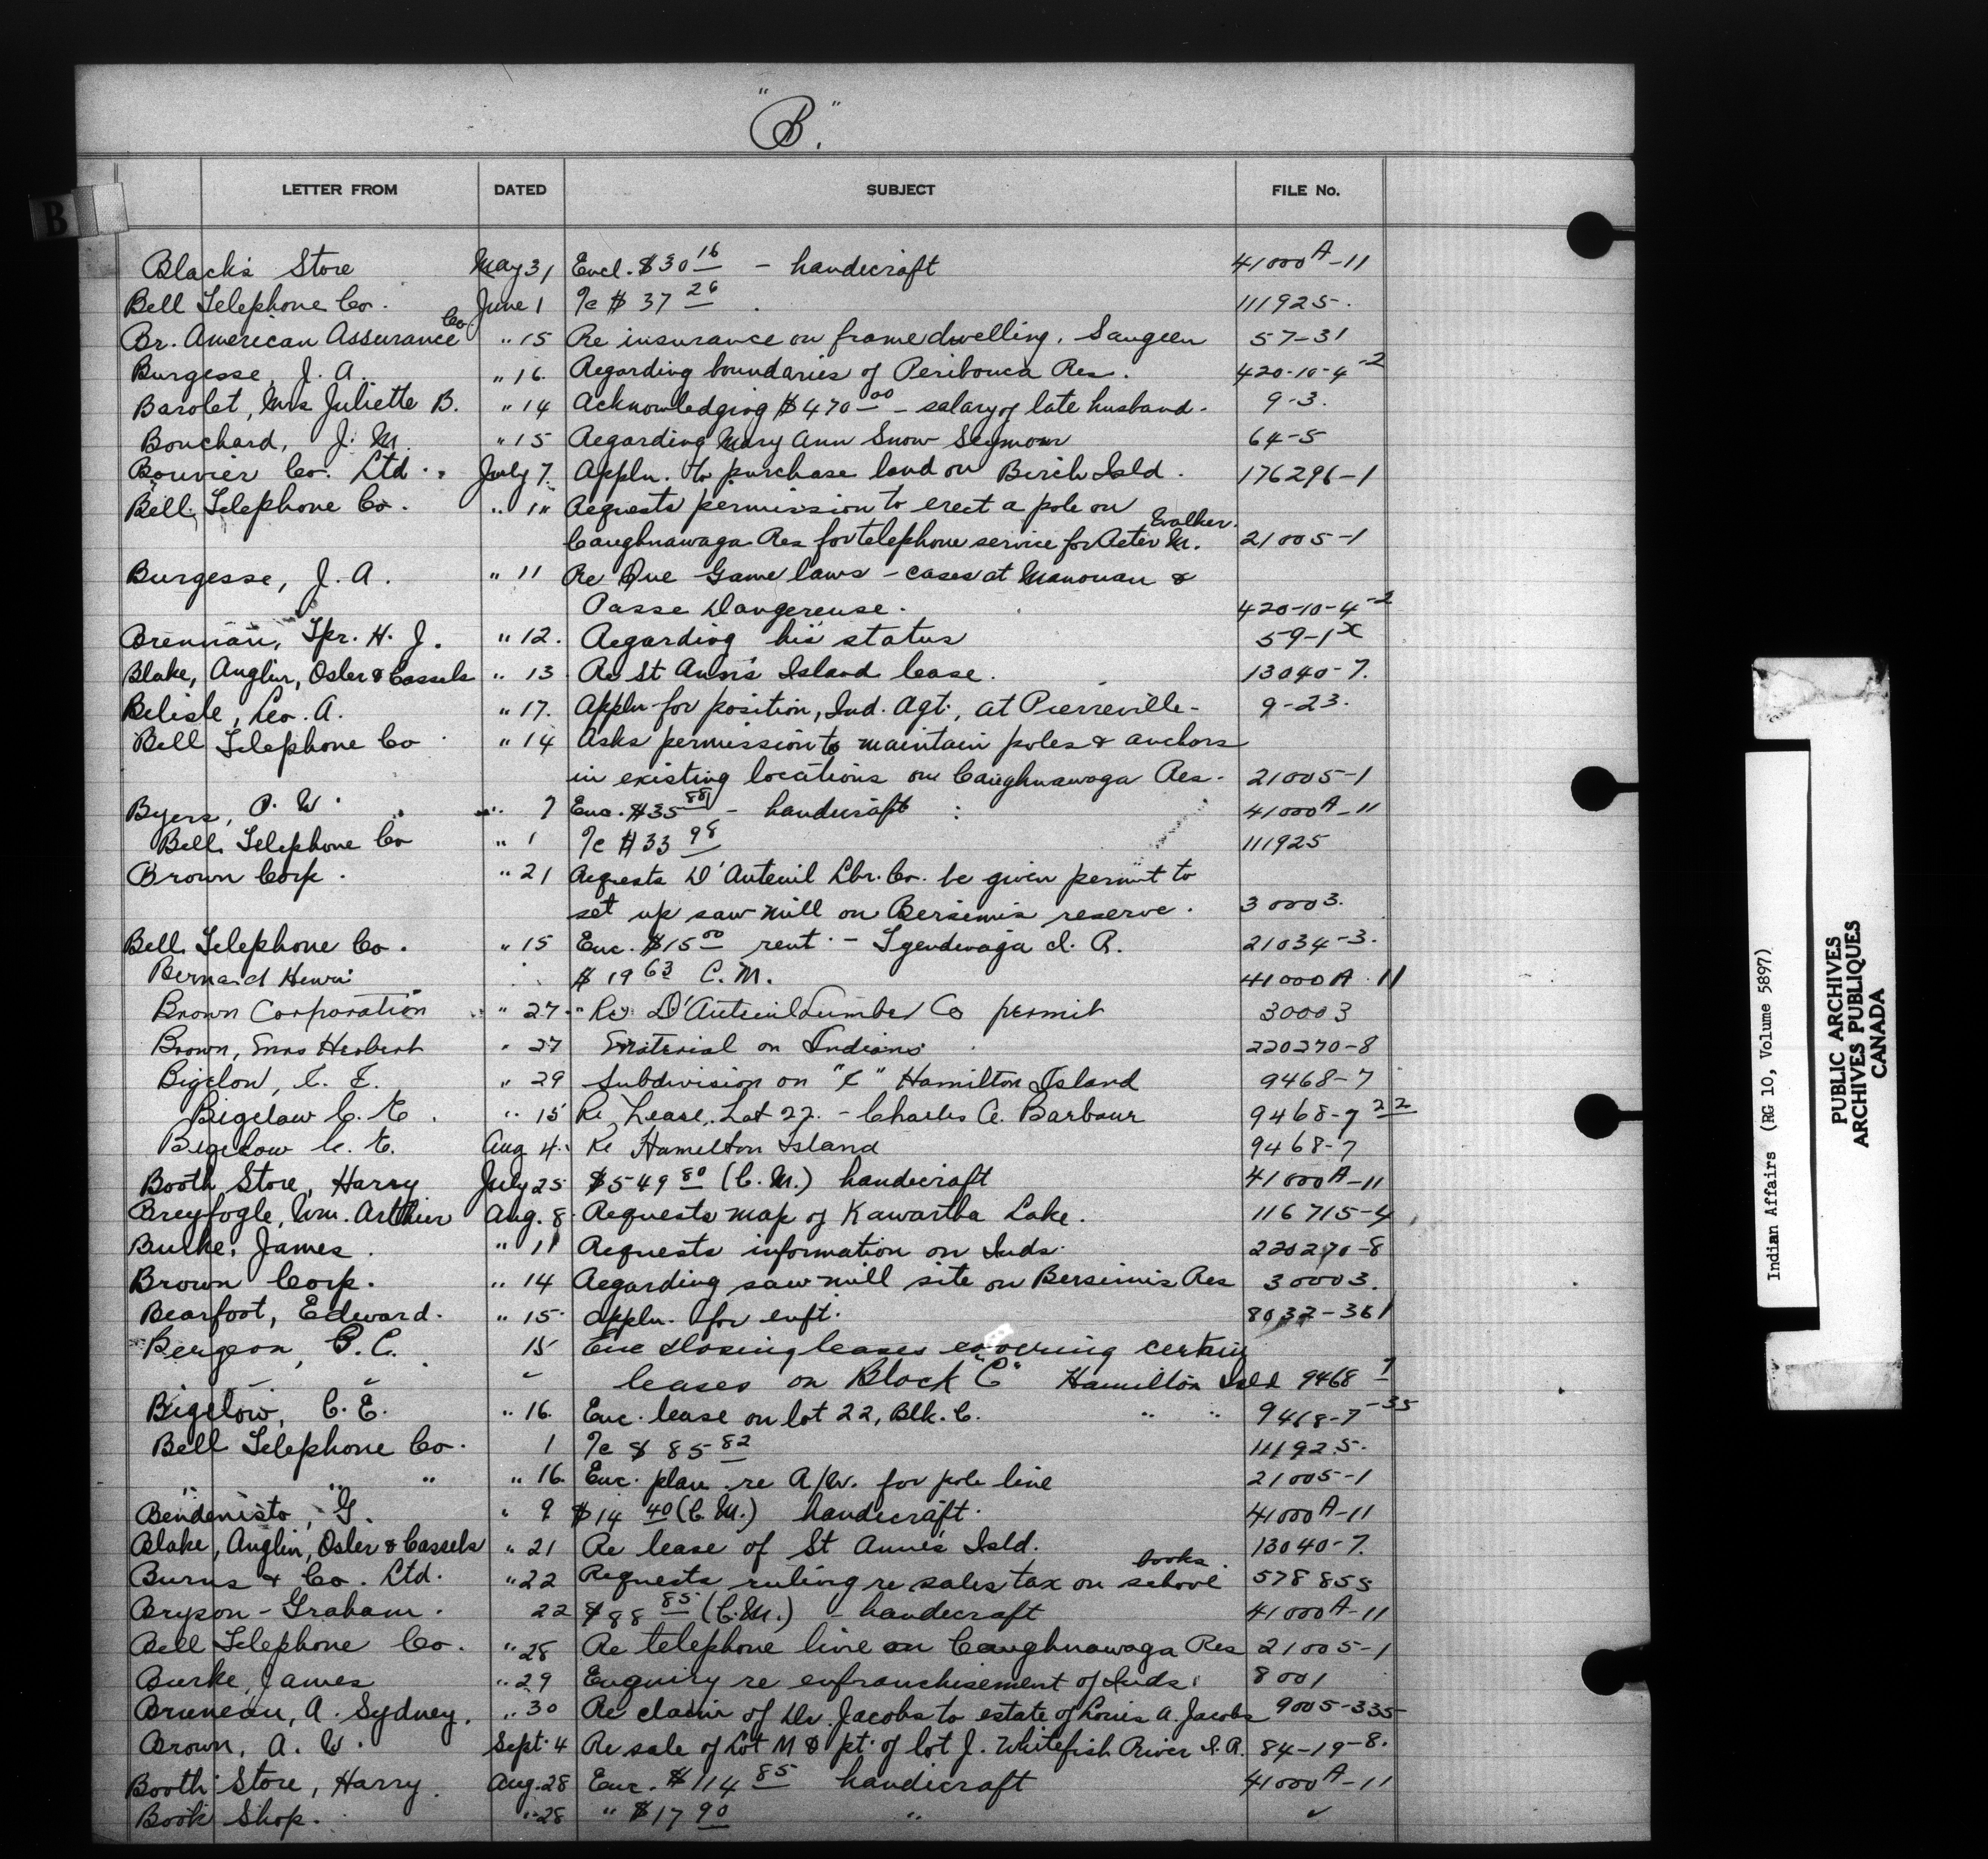 "B".
B
LETTER FROM DATED SUBJECT FILE No.
Black's Store May 31 Encl. $30 16 - handicraft 41000A-11
Bell Telephone Co. June 1 %c $ 37 26 111925.
Br. American Assurance Co. " 15 Re insurance on frame dwelling, Saugeen 57-31
Burgesse, J. A. " 16. Regarding boundaries of Peribonca Res. 420-10-4-2
Barolet, Mrs Juliette B. " 14 Acknowledging $470 00 - salary of late husband. 9-3.
Bouchard, J. M. " 15 Regarding Mary Ann Snow Seymour 64-5
Bouvier Co. Ltd. July 7. Appln. to purchase land on Birch Isld. 176296-1
Bell Telephone Co. " 1" Requests permission to erect a pole on
Caughnawaga Res for telephone service for Peter M. Walker. 21005-1
Burgesse, J. A. " 11 Re Que Game laws - cases at Manouan &
Passe Dangereuse. 420-10-4-2
Brennan, Spr. H. J. " 12. Regarding his status 59-1x
Blake, Anglin, Osler & Cassels " 13 Re St Ann's Island lease. 13040-7.
Belisle, Leo. A. " 17. Appln for position, Ind. Agt., at Pierreville- 9-23.
Bell Telephone Co " 14 Asks permission to maintain poles & anchors
in existing locations on Caughnawaga Res. 21005-1
Byers, P. W. " 7 Enc. $35 88 - handicraft 41000A-11
Bell Telephone Co " 1 %c $33 98 111925
Brown Corp. " 21 Requests D'Auteuil Lbr. Co. be given permit to
set up saw mill on Bersimis reserve. 30003.
Bell Telephone Co. " 15 Enc. $15 00 rent - Tyendinaga I. R. 21034-3.
Bernard Henri $ 19 63 C. M. 41000A 11
Brown Corporation " 27 Re D'Auteuil Lumber Co permit 30003
Brown, Mrs Herbert " 27 Material on Indians 220270-8
Bigelow, C. E. " 29 Subdivision on "C" Hamilton Island 9468-7
Bigelow C. E. " 15 Re Lease, Lot 22. - Charles A. Barbour 9468-7 22
Bigelow C. E. Aug 4. Re Hamilton Island 9468-7
Booth Store, Harry July 25 $549 80 (C. M.) handicraft 41000A-11
Breyfogle, Wm. Arthur Aug. 8. Requests map of Kawartha Lake. 116715-4
Burke, James. " 11 Requests information on Inds. 220270-8
Brown Corp. " 14 Regarding saw mill site on Bersimis Res 30003.
Bearfoot, Edward. " 15. Appln. for enft. 8032-361
Bergeon, C. 15 Enc closing leases covering certain
" " " leases on Block "C" Hamilton Isld 9468 7
Bigelow, C. E. " 16. Enc. lease on lot 22, Blk. C. " " 9468-7-35
Bell Telephone Co. 1 %c $ 85 82 111925.
" " " " 16. Enc. plan re R/W. for pole line 21005-1
Bendenisto, G. " 9 $14 40 (C. M.) handicraft. 41000A-11
Blake, Anglin, Osler & Cassels " 21 Re lease of St Anne's Isld. 13040-7.
Burns & Co. Ltd. " 22 Requests ruling re sales tax on school books. 578855
Bryson-Graham. 22 $88 85 (C. M.) - handicraft 41000A-11
Bell Telephone Co. " 28 Re telephone line on Caughnawaga Res 21005-1
Burke, James " 29 Enquiry re enfranchisement of Inds. 8001
Bruneau, A. Sydney. " 30 Re claim of Dr. Jacobs to estate of Louis A. Jacobs 9005-335
Brown, A. W. Sept. 4 Re sale of Lot M & pt. of lot J. Whitefish River I. R. 84-19-8.
Booth Store, Harry. Aug. 28 Enc. $114 85 handicraft 41000A-11
Book Shop. " 28 " $17 90 " ✓
Indian Affairs (RG 10, Volume 5897)
PUBLIC ARCHIVES
ARCHIVES PUBLIQUES
CANADA